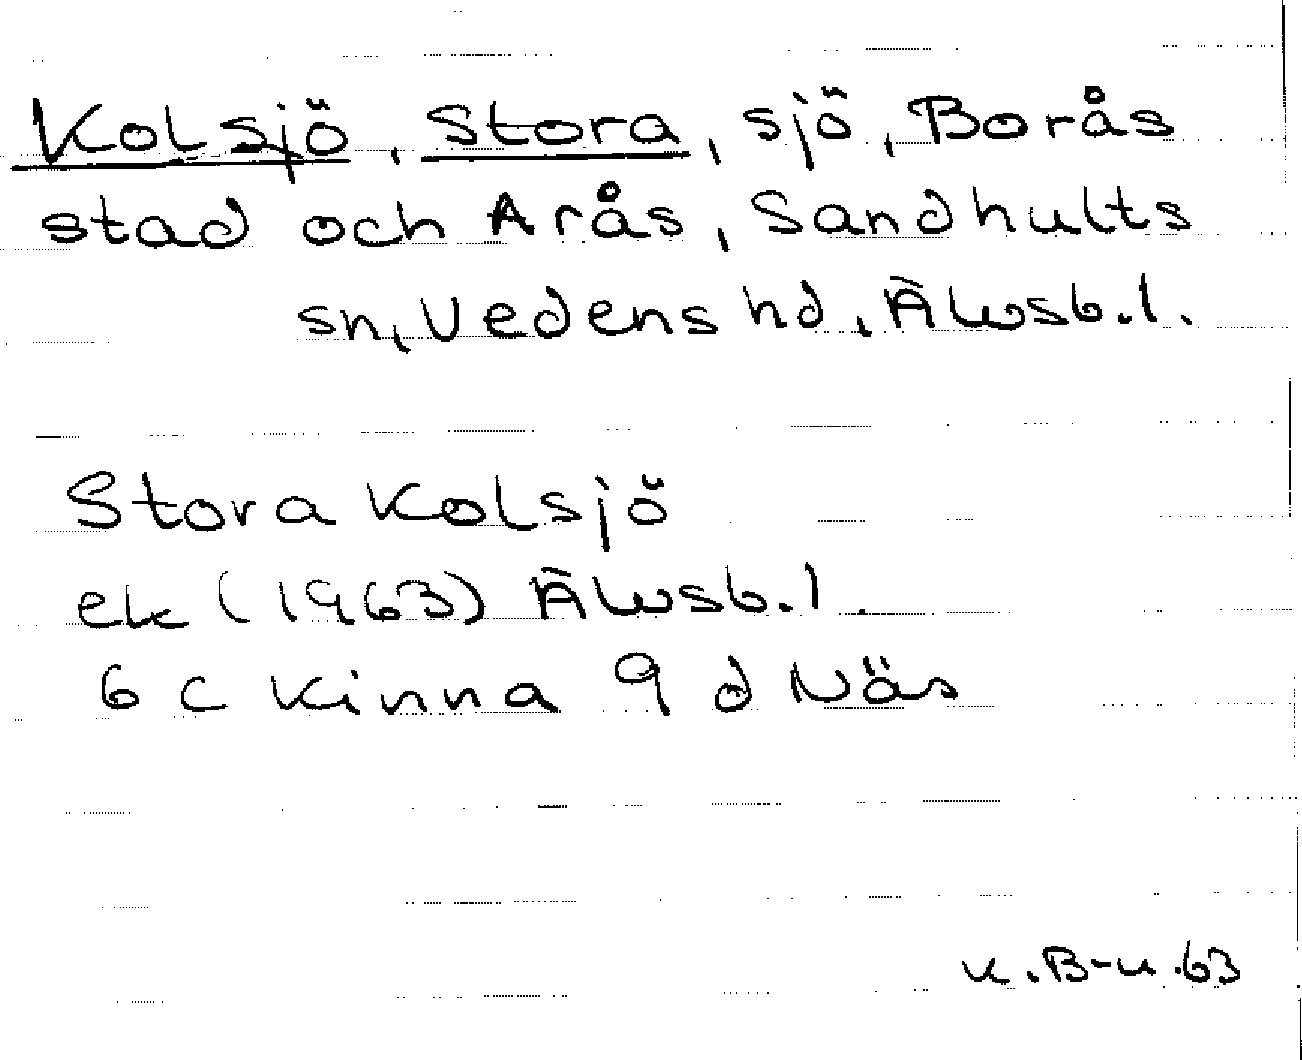 Kolsjö, Stora, sjö, Borås
stad och Arås, Sandhults
sn, Vedens hd, Älvsb.l.
Stora Kolsjö
ek (1963) Älvsb.l.
6 C Kinna 9 d Näs
K.B-K.63